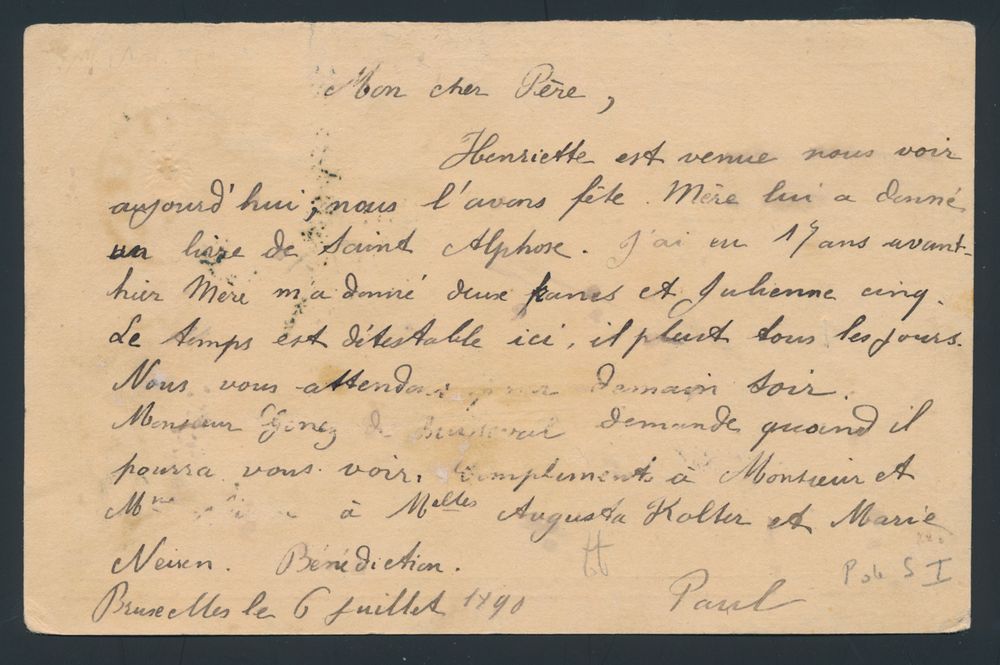 Mon cher Père,
Henriette est venue nous voir
aujourd'hui, nous l'avons fêté. Mère lui a donné
un livre de Saint Alphose. J'ai eu 17 ans avant-
hier Mère m'a donné deux francs et Julienne cinq.
Le temps est détestable ici, il pleut tous les jours.
Nous vous attendons demain soir.
Monsieur de demande quand il
pourra vous voir. Compliments à Monsieur et
Mme à Melles Augusta Kolter et Marie
Neisen. Bénédiction.
Bruxelles le 6 juillet 1890 Paul